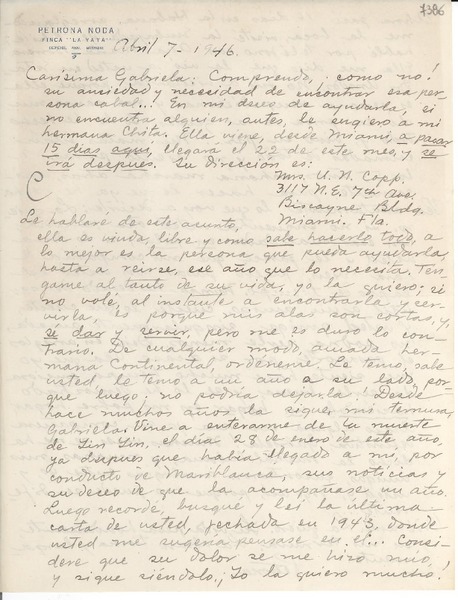 7386
PETRONA NODA
FINCA "LA YAYA"
Abril 7- 1946.
Carísima Gabriela: Comprendo, ¡como no!
su ansiedad y necesidad de encontrar esa per-
sona cabal..! En mi deseo de ayudarla, si
no encuentra alguien, antes, le sugiero a mi
hermana Chita. Ella viene, desde Miami, a pasar
15 dias aquí, llegará el 22 de este mes, y se
irá despues. Su Dirección es:
Mrs. U. N. Copp.
3117 N.E. 7th Ave.
Biscayne Bldg.
Miami. Fla.
Le hablaré de este asunto,
ella es viuda, libre y como sabe hacerlo todo, a
lo mejor es la persona que pueda ayudarla,
hasta a reirse, ese año que lo necesita. Ten-
game al tanto de su vida, yo la quiero; si
no volé, al instante a encontrarla y ser-
virla, es porque mis alas son cortas, y,
sé dar y servir, pero me es duro lo con-
trario. De cualquier modo, amada her-
mana Continental, ordéneme. Le temo, sabe
usted, le temo a un año a su lado, por-
que luego; no podría dejarla! Desde
hace muchos años la sigue, mi ternura,
Gabriela. Vine a enterarme de la muerte
de Yin Yin, el día 28 de enero de este año,
ya despues que había llegado a mi, por
conducto de Mariblanca, sus noticias y
su deseo de que la acompañase un año.
Luego recorde, busqué y leí la última
carta de usted, fechada en 1943, donde
usted me sugería pensase en el... Consi-
dere que su dolor se me hizo mío,
y sigue siéndolo, ¡Yo la quiero mucho!